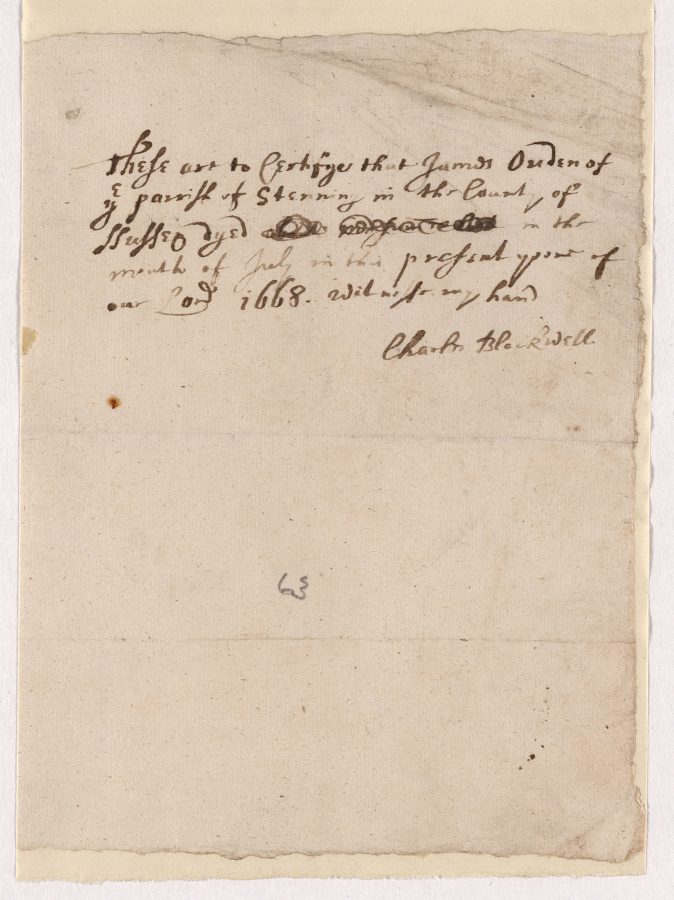 These are to Certifye that James Ouden of
ye parrish of Stenning in the County of
Sussex dyed in the
month of July in this present yeare of
our Lord 1668. Witnesse my hand
Charles Blackwell
63